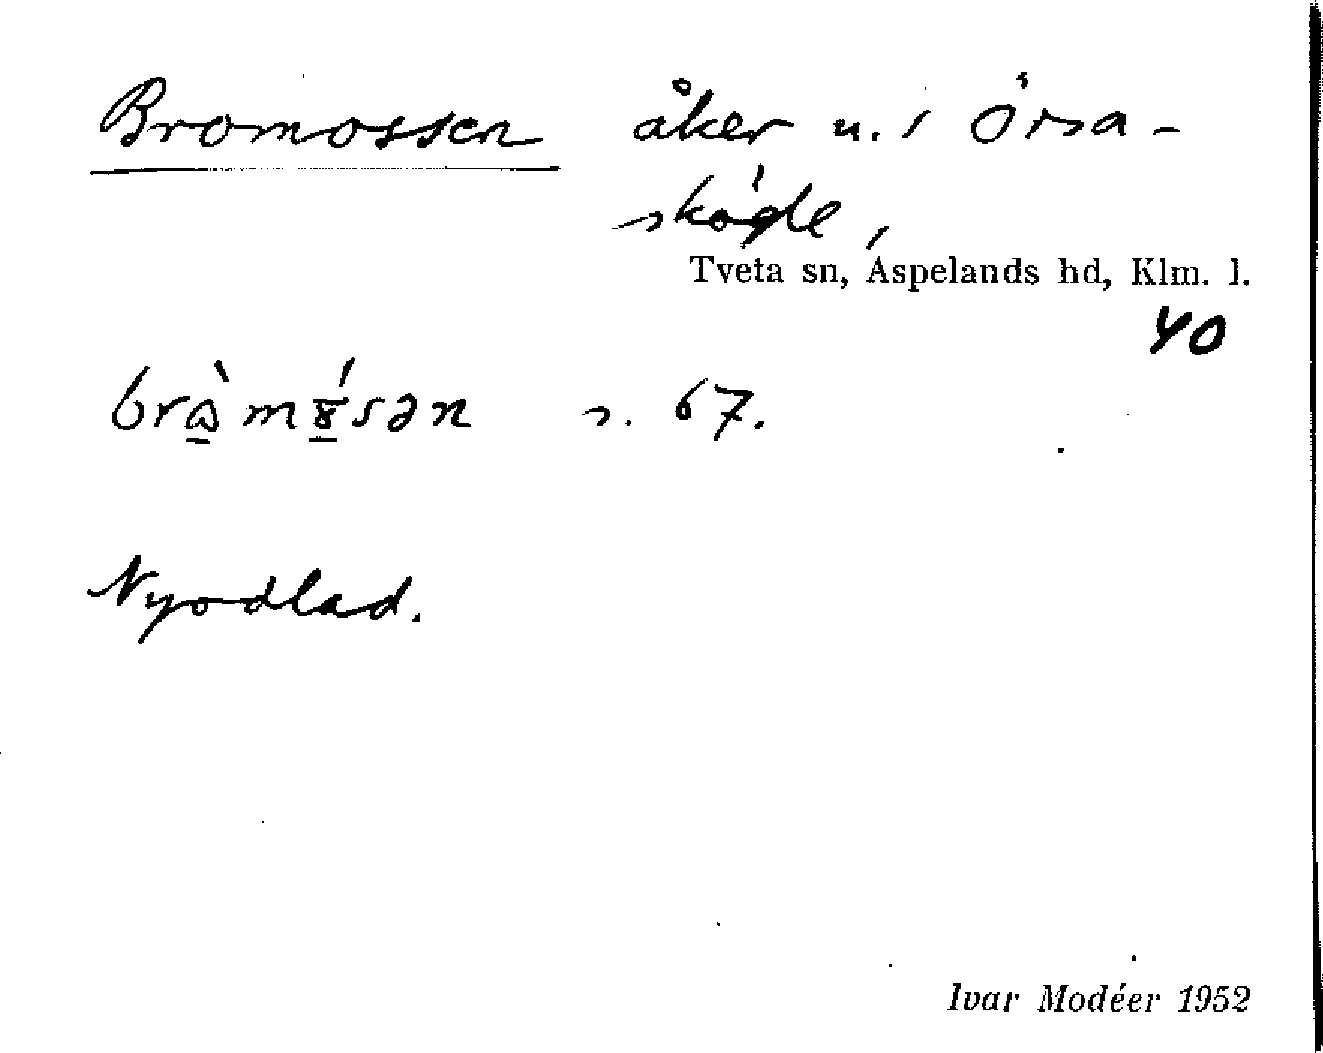 Bromossen åker u. / Örsa-
skögle,
Tveta sn, Aspelands hd, Klm. l.
40
s. 67.
Nyodlad.
Ivar Modéer 1952